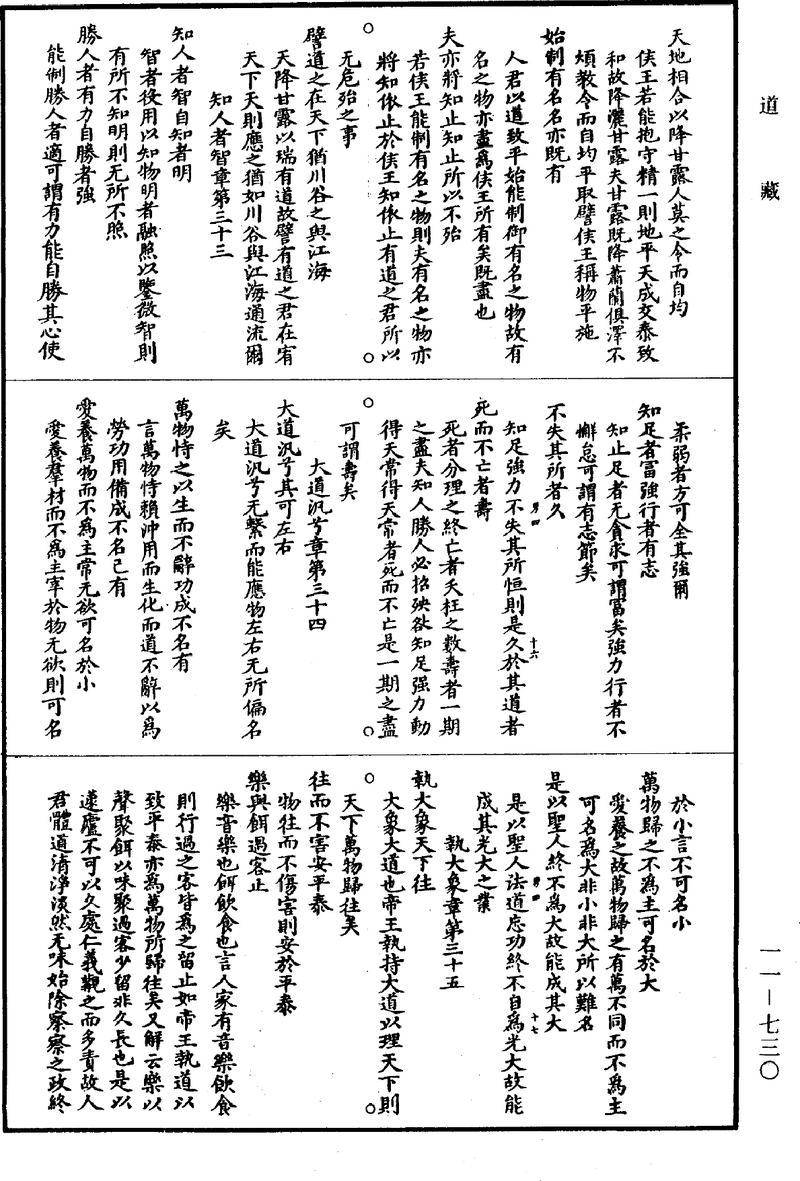 道藏
一一—七三〇
天地相合以降甘露人莫之令而自均
侯王若能抱守精一則地平天成交泰致
和故降灑甘露夫甘露既降蕭蘭俱澤不
煩教令而自均平取譬侯王稱物平施
始制有名名亦既有
人君以道致平始能制御有名之物故有
名之物亦盡爲侯王所有矣既盡也
夫亦將知止知止所以不殆
若侯王能制有名之物則夫有名之物亦
將知依止於侯王知依止有道之君所以
无危殆之事
譬道之在天下猶川谷之與江海
天降甘露以瑞有道故譬有道之君在宥
天下天則應之猶如川谷與江海通流爾
知人者智章第三十三
知人者智自知者明
智者役用以知物明者融照以鑒微智則
有所不知明則无所不照
勝人者有力自勝者強
能制勝人者適可謂有力能自勝其心使
柔弱者方可全其強爾
知足者富強行者有志
知止足者无貪求可謂富矣強力行者不
懈怠可謂有志節矣
不失其所者久
知足強力不失其所恒則是久於其道者
死而不亡者壽
死者分理之終亡者夭枉之數壽者一期
之盡夫知人勝人必招殃欲知足强力動
得天常得天常者死而不亡是一期之盡
可謂壽矣
大道汎兮章第三十四
大道汎兮其可左右
大道汎兮无繫而能應物左右无所偏名
矣
萬物恃之以生而不辭功成不名有
言萬物恃賴沖用而生化而道不辭以爲
勞功用備成不名己有
愛養萬物而不爲主常无欲可名於小
愛養羣材而不爲主宰於物无欲則可名
於小言不可名小
萬物歸之不爲主可名於大
愛養之故萬物歸之有萬不同而不爲主
可名爲大非小非大所以難名
是以聖人終不爲大故能成其大
是以聖人法道忘功終不自爲光大故能
成其光大之業
執大象章第三十五
執大象天下往
大象大道也帝王執持大道以理天下則
天下萬物歸往矣
往而不害安平泰
物往而不傷害則安於平泰
樂與餌過客止
樂音樂也餌飲食也言人家有音樂飲食
則行過之客皆爲之留止如帝王執道以
致平泰亦爲萬物所歸往矣又解云樂以
聲聚餌以味聚過客少留非久長也是以
蘧廬不可以久處仁義觀之而多責故人
君體道清淨淡然无味始除察察之政終